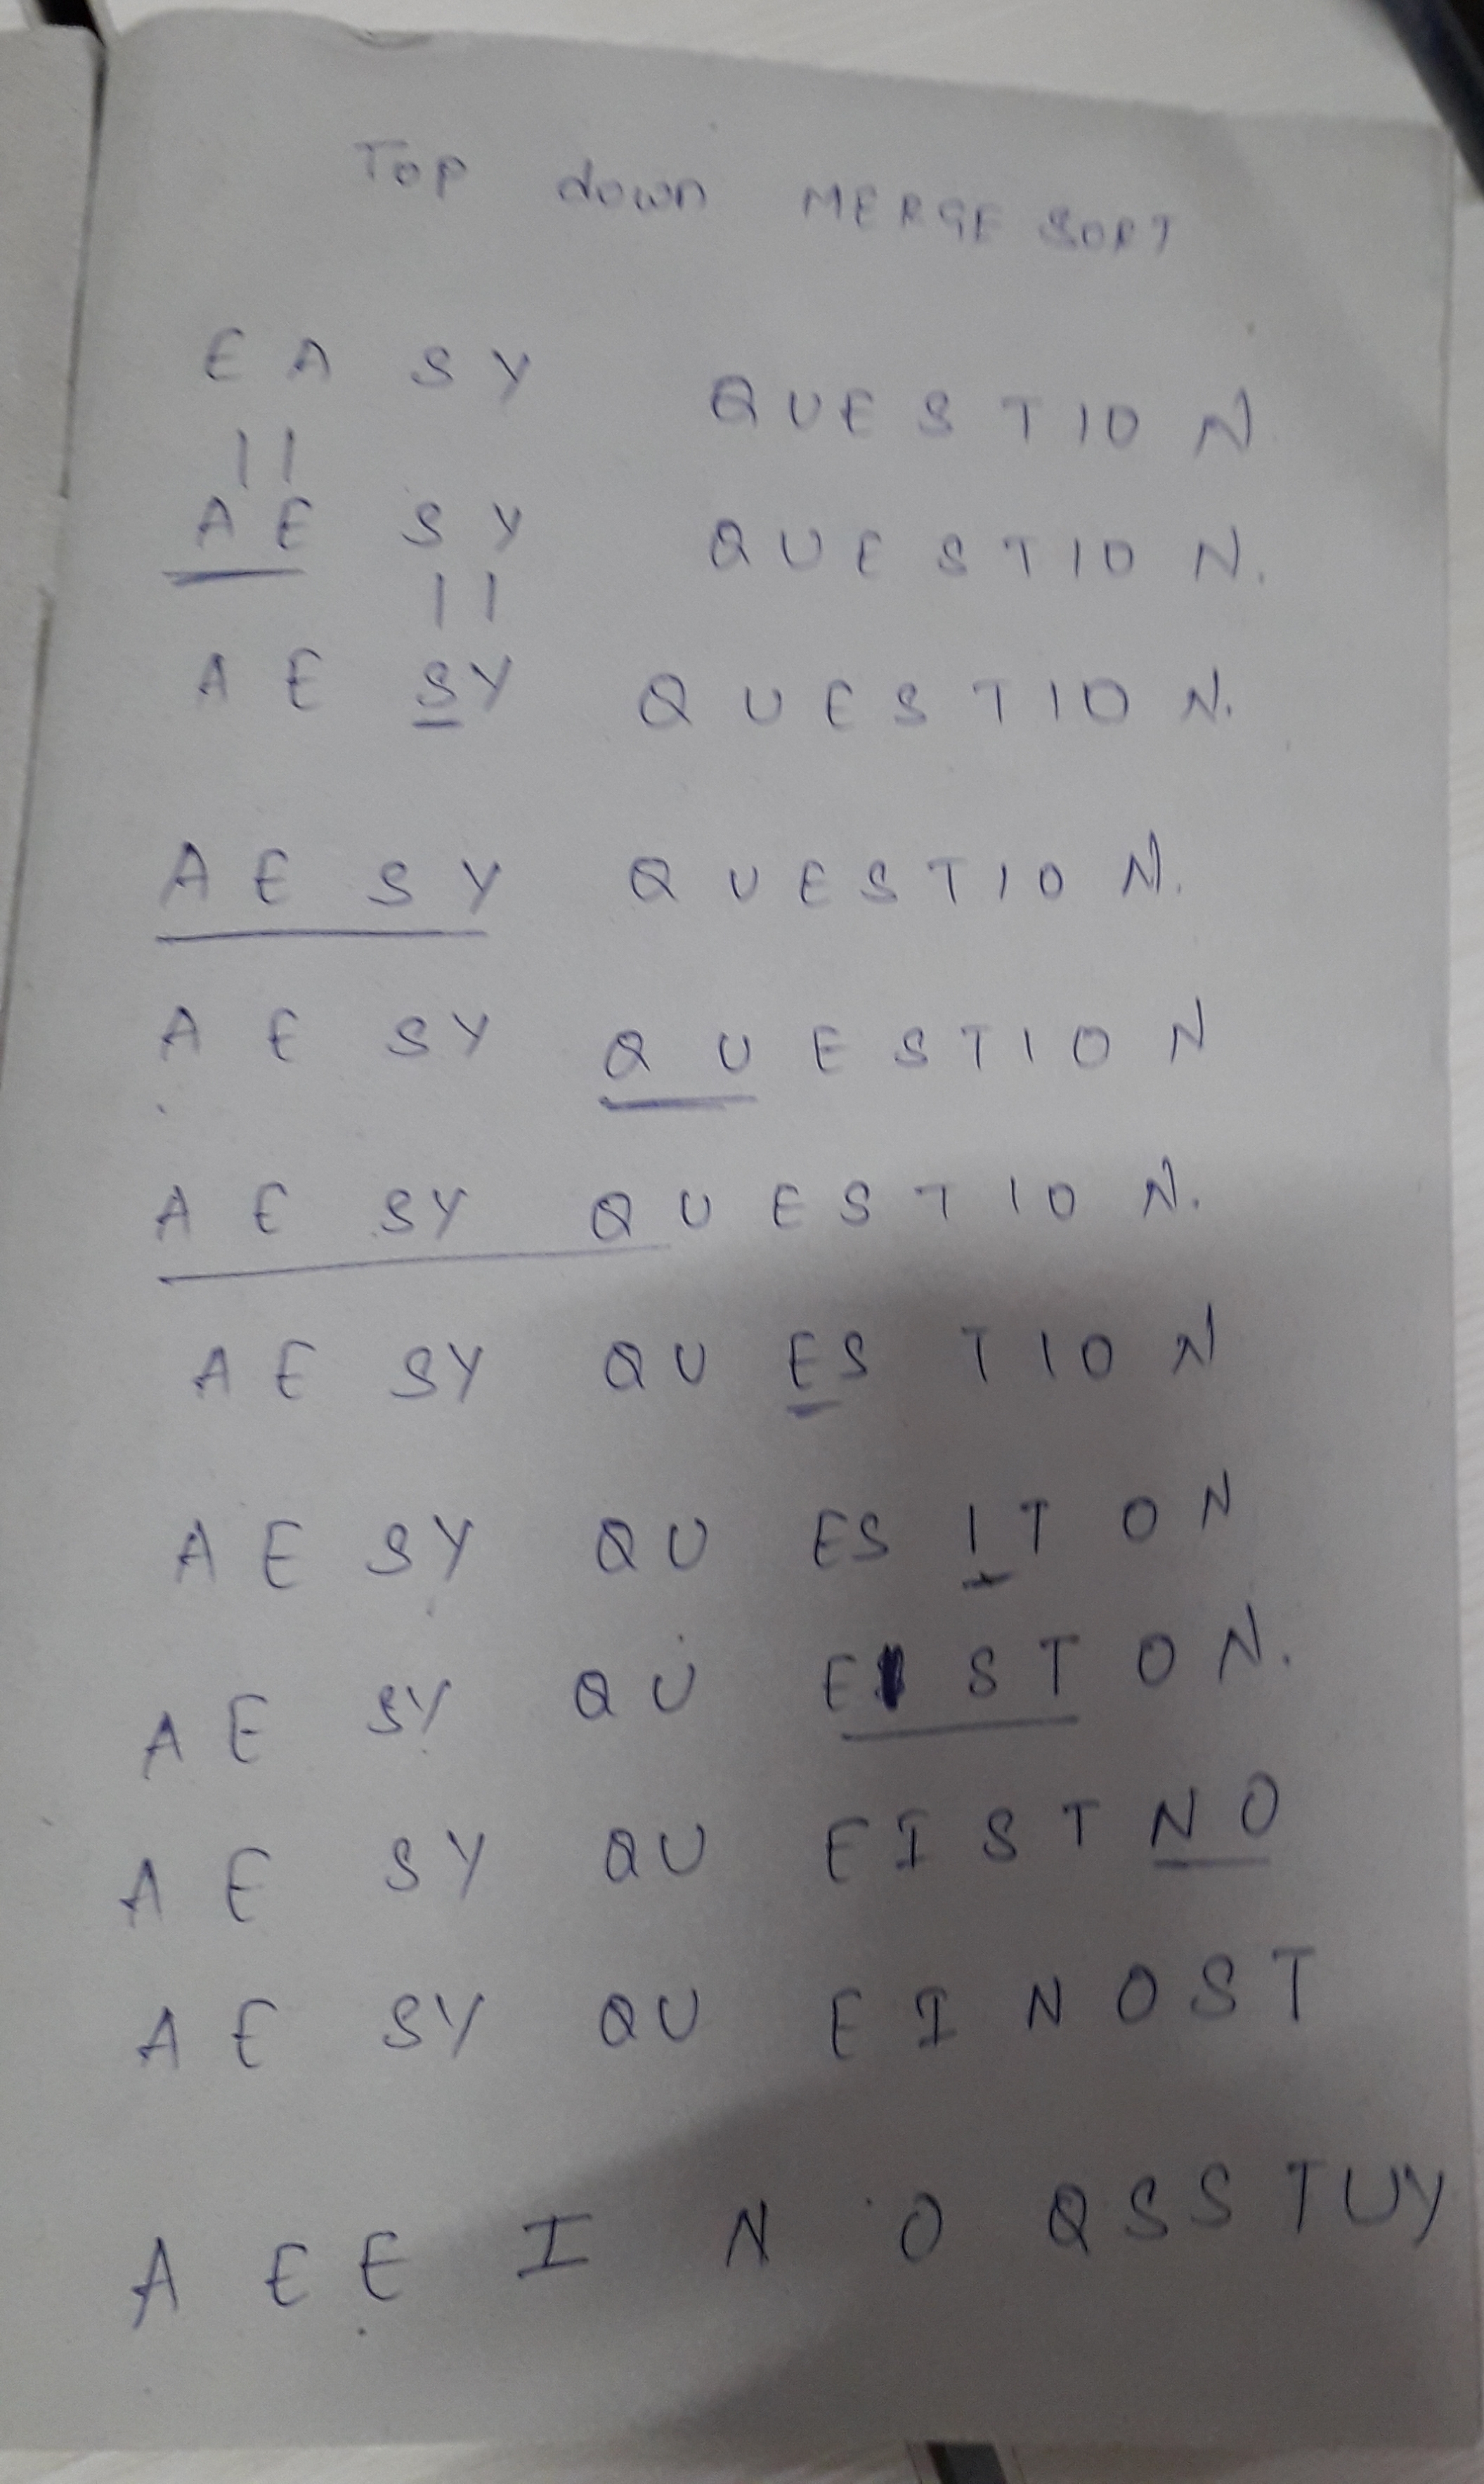 Top down MERGE SORT
E A S Y QUESTION
A E S Y QUESTION.
A E SY QUESTION.
A E S Y QUESTION.
A E SY QUESTION
A E SY QUESTION.
A E SY QU ES TION
A E SY QU ES IT ON
A E SY QU EI ST ON.
A E SY QU EIST NO
A E SY QU EINOST
A E E I N O QSSTUY